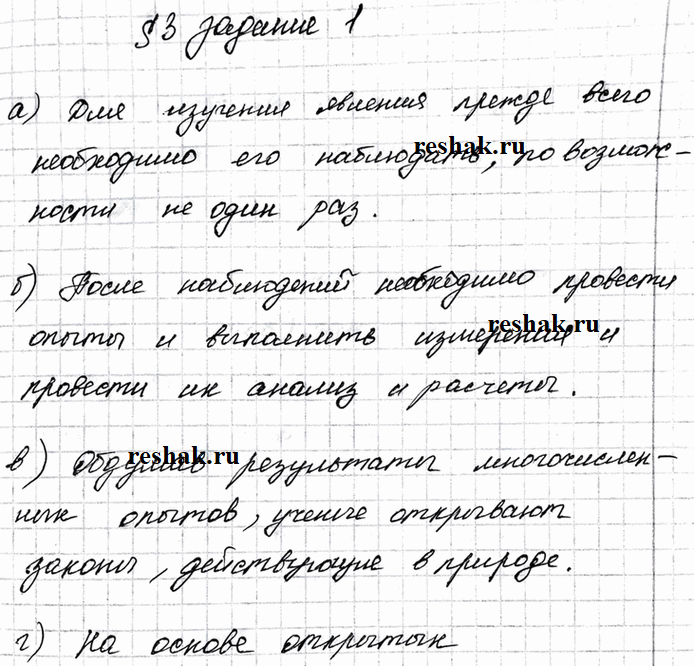 §3 задание 1
а) Для изучения явления прежде всего
необходимо его наблюдать, по возмож-
ности не один раз.
б) После наблюдений необходимо провести
опыты и выполнить измерения и
провести их анализ и расчеты.
в) Обдумав результаты многочислен-
ных опытов, ученые открывают
законы, действующие в природе.
г) На основе открытых
reshak.ru
reshak.ru
reshak.ru